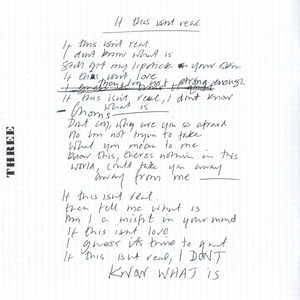 If this isnt real
If this isnt real.
I dont know what is
Still got my lipstick on your skin
If this isnt love
then I'm not strong enough
If this isnt real, I dont know
what is
Chorus
Dont cry, why are you so afraid
No Im not tryin to fake
What you mean to me
Know this, theres nothin in this
world, could take you away
away from me
If this isnt real.
then tell me what is
Am I a misfit in your mind
If this isnt love
I guess its time to quit
If this isnt real, I DONT
KNOW WHAT IS
THREE